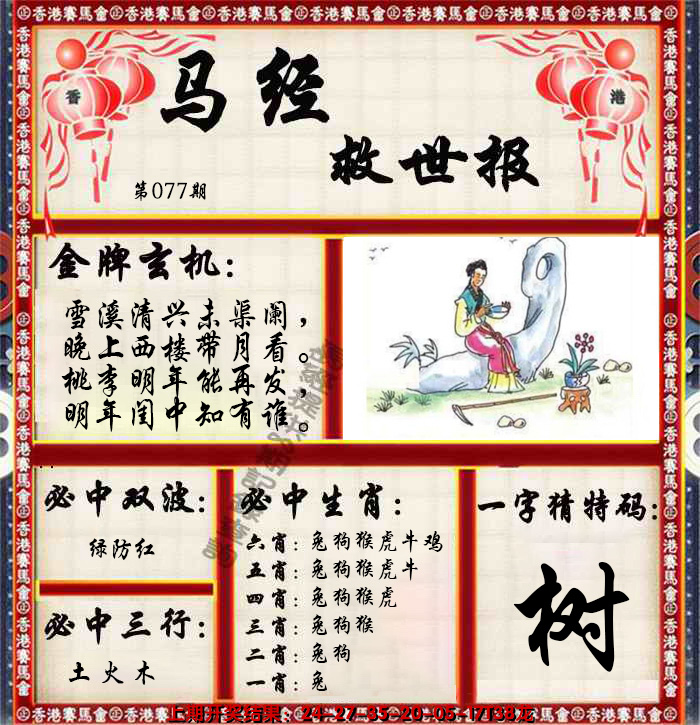 香港賽馬會
香
港
马经
救世报
第077期
金牌玄机：
雪溪清兴未渠阑，
晚上西楼带月看。
桃李明年能再发，
明年闺中知有谁。
必中双波：
绿防红
必中三行：
土火木
必中生肖：
六肖：兔狗猴虎牛鸡
五肖：兔狗猴虎牛
四肖：兔狗猴虎
三肖：兔狗猴
二肖：兔狗
一肖：兔
一字猜特码：
树
上期开奖结果：24-27-35-20-05-17T38龙